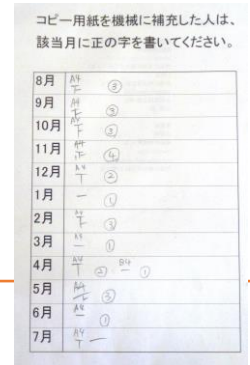 コピー用紙を機械に補充した人は、
該当月に正の字を書いてください。
8月 A4 下 ③
9月 A4 下 ③
10月 A4 下 ③
11月 A4 正 ④
12月 A4 T ②
1月 一 ①
2月 A4 下 ③
3月 A4 一 ①
4月 A4 T ② B4 一 ①
5月 A4 ③
6月 A4 一 ①
7月 A4 T 一